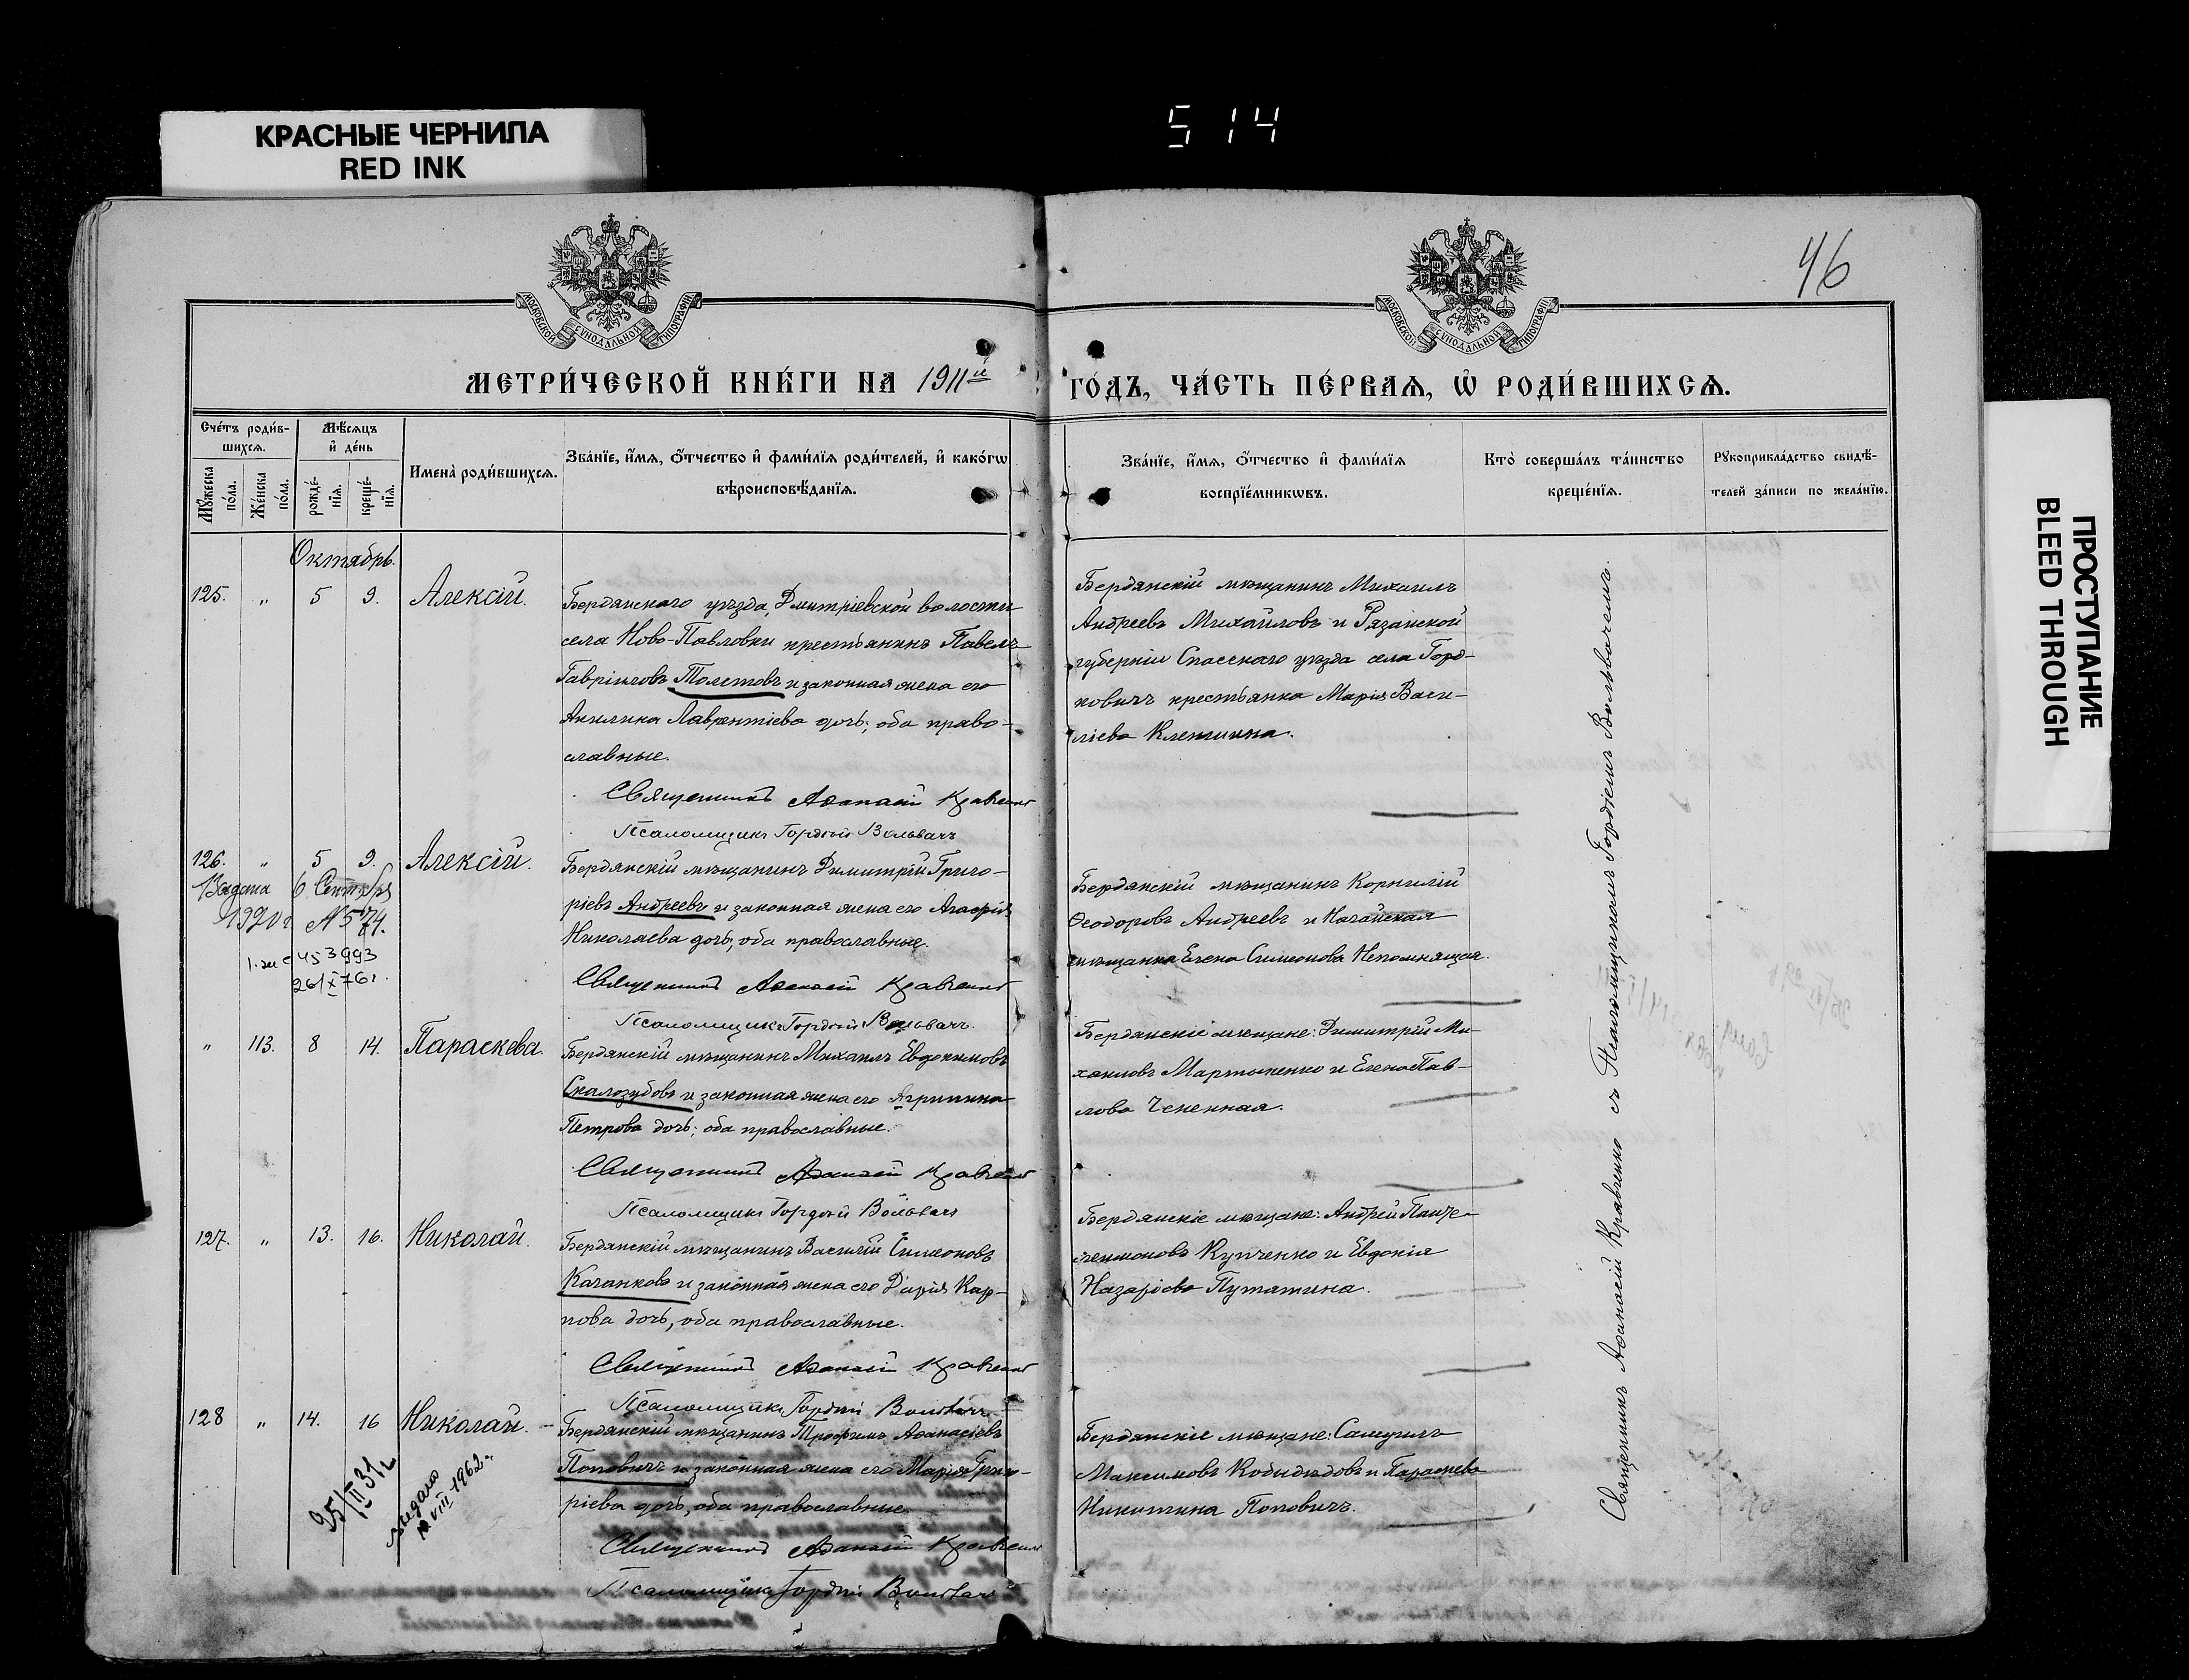 КРАСНЫЕ ЧЕРНИЛА
RED INK
514
46
МОСКОВСКОЙ СѴНОДАЛЬНОЙ ТИПОГРАФІИ
МОСКОВСКОЙ СѴНОДАЛЬНОЙ ТИПОГРАФІИ
МЕТРИ́ЧЕСКОЙ КНИ́ГИ НА 1911й ГО́ДЪ, ЧА́СТЬ ПЕ́РВАѦ, Ѡ҆ РОДИ́ВШИХСѦ.
Сче́тъ роди́в-
шихсѧ.
Мꙋ́жеска по́ла.
Же́нска по́ла.
Мѣ́сѧцъ
и҆ де́нь
рожде́-нїѧ.
креще́-нїѧ.
Имена̀ роди́вшихсѧ.
Зва́нїе, и҆́мѧ, ѻ҆́тчество и҆ фами́лїѧ роди́телей, и҆ како́гѡ
вѣроисповѣ́данїѧ.
Зва́нїе, и҆́мѧ, ѻ҆́тчество и҆ фами́лїѧ
воспрїе́мникѡвъ.
Кто̀ соверша́лъ та́инство
креще́нїѧ.
Рꙋкоприкла́дство свидѣ́-
телей за́писи по жела́нїю.
Октябрь.
125. " 5 9. Алексій.
Бердянскаго уѣзда, Дмитріевской волости
села Ново-Павловки крестьянинъ Павелъ
Гавріиловъ Толстовъ и законная жена его
Акилина Лаврентіева дочь; оба право-
славные.
Священникъ Аѳанасій Кравченко
Псаломщикъ Гордій Вольвачъ
Бердянскій мѣщанинъ Михаилъ
Андреевъ Михайловъ и Рязанской
губерніи Спасскаго уѣзда села
крестьянка Марія Васи-
ліева
126. " 5 9. Алексій.
Выдана 6 Сентября
1920 г. № 574.
453993
26/X 76г.
Бердянскій мѣщанинъ Димитрій Григо-
ріевъ Андреевъ и законная жена его
Николаева дочь; оба православные.
Священникъ Аѳанасій Кравченко
Псаломщикъ Гордій Вольвачъ.
Бердянскій мѣщанинъ Корнилій
Ѳеодоровъ Андреевъ и Ногайская
мѣщанка Елена Симеонова Непомнящая.
" 113. 8 14. Параскева.
Бердянскій мѣщанинъ Михаилъ Евдокимовъ
Скалозубовъ и законная жена его Агриппина
Петрова дочь; оба православные.
Священникъ Аѳанасій Кравченко
Псаломщикъ Гордій Вольвачъ
Бердянскіе мѣщане: Димитрій Ми-
хаиловъ Мартыненко и Елена Пав-
лова
127. " 13. 16. Николай.
Бердянскій мѣщанинъ Василій Симеоновъ
Качанковъ и законная жена его Дарія Кар-
пова дочь, оба православные.
Священникъ Аѳанасій Кравченко
Псаломщикъ Гордій Вольвачъ
Бердянскіе мѣщане: Андрей Панте-
леимоновъ Купченко и Евдокія
Назаріева Путятина.
128 " 14. 16 Николай.
25/II 31 г.
выдано
10 VIII 1962 г.
Бердянскій мѣщанинъ Трофимъ Аѳанасіевъ
Поповичъ и законная жена его Марія Григо-
ріева дочь, оба православные.
Священникъ Аѳанасій Кравченко
Псаломщикъ Гордій Вольвачъ
Бердянскіе мѣщане: Самуилъ
Максимовъ Кобыдѣдовъ и Параскева
Никитина Поповичъ.
Священникъ Аѳанасій Кравченко съ Псаломщикомъ Гордіемъ Вольвачемъ.
ПРОСТУПАНИЕ
BLEED THROUGH